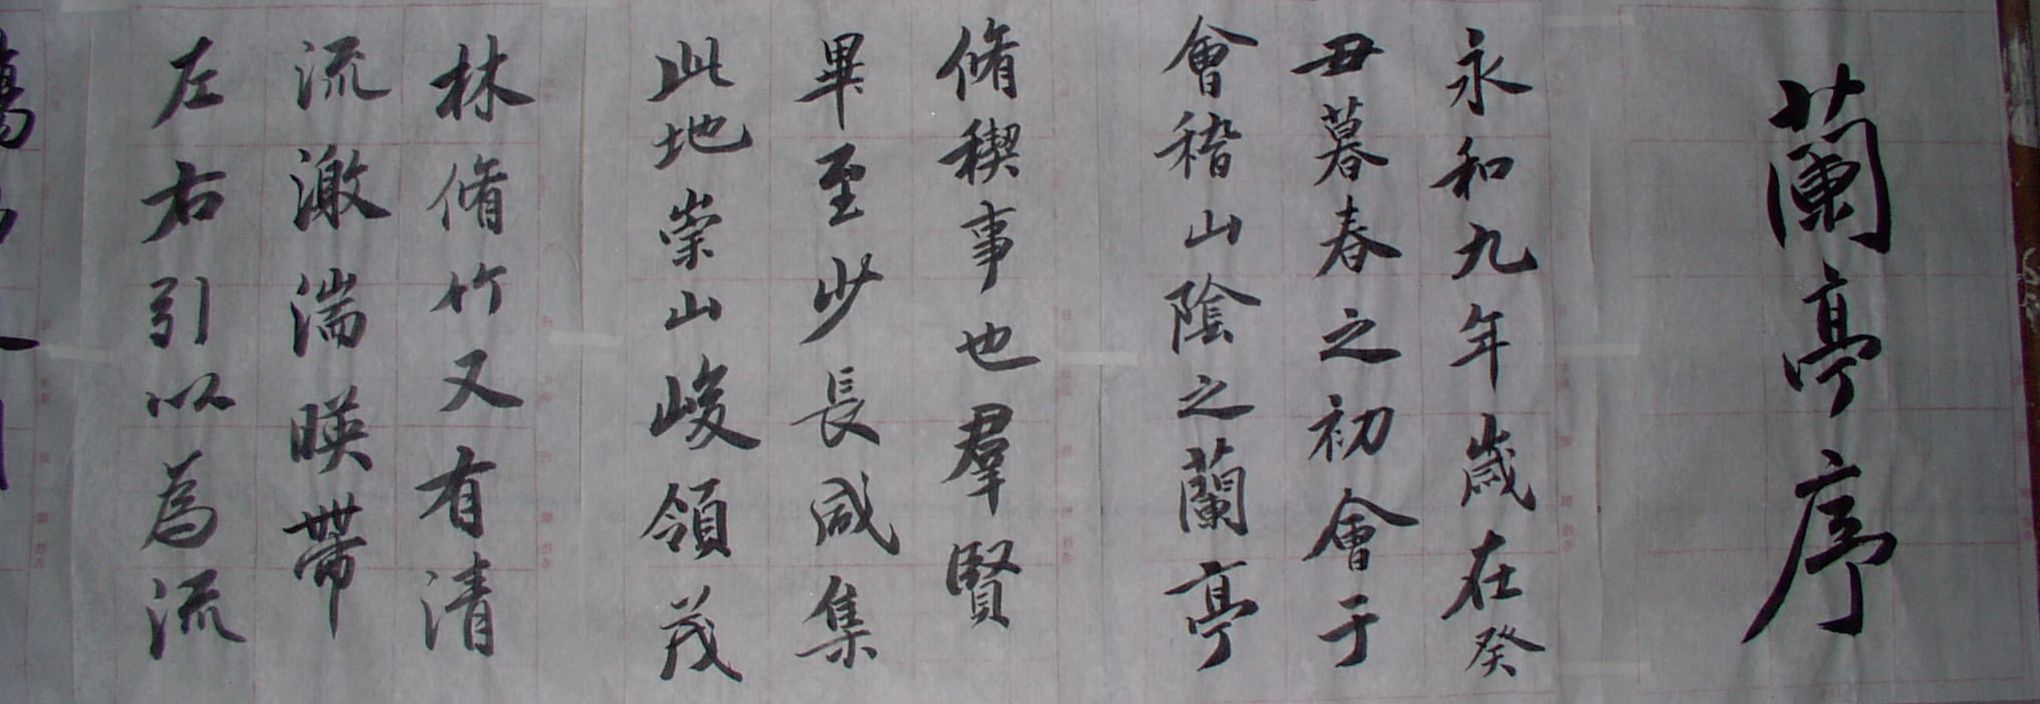 蘭亭序
永和九年歲在癸
丑暮春之初會于
會稽山陰之蘭亭
脩稧事也羣賢
畢至少長咸集
此地崇山峻領茂
林脩竹又有清
流激湍暎帶
左右引以為流